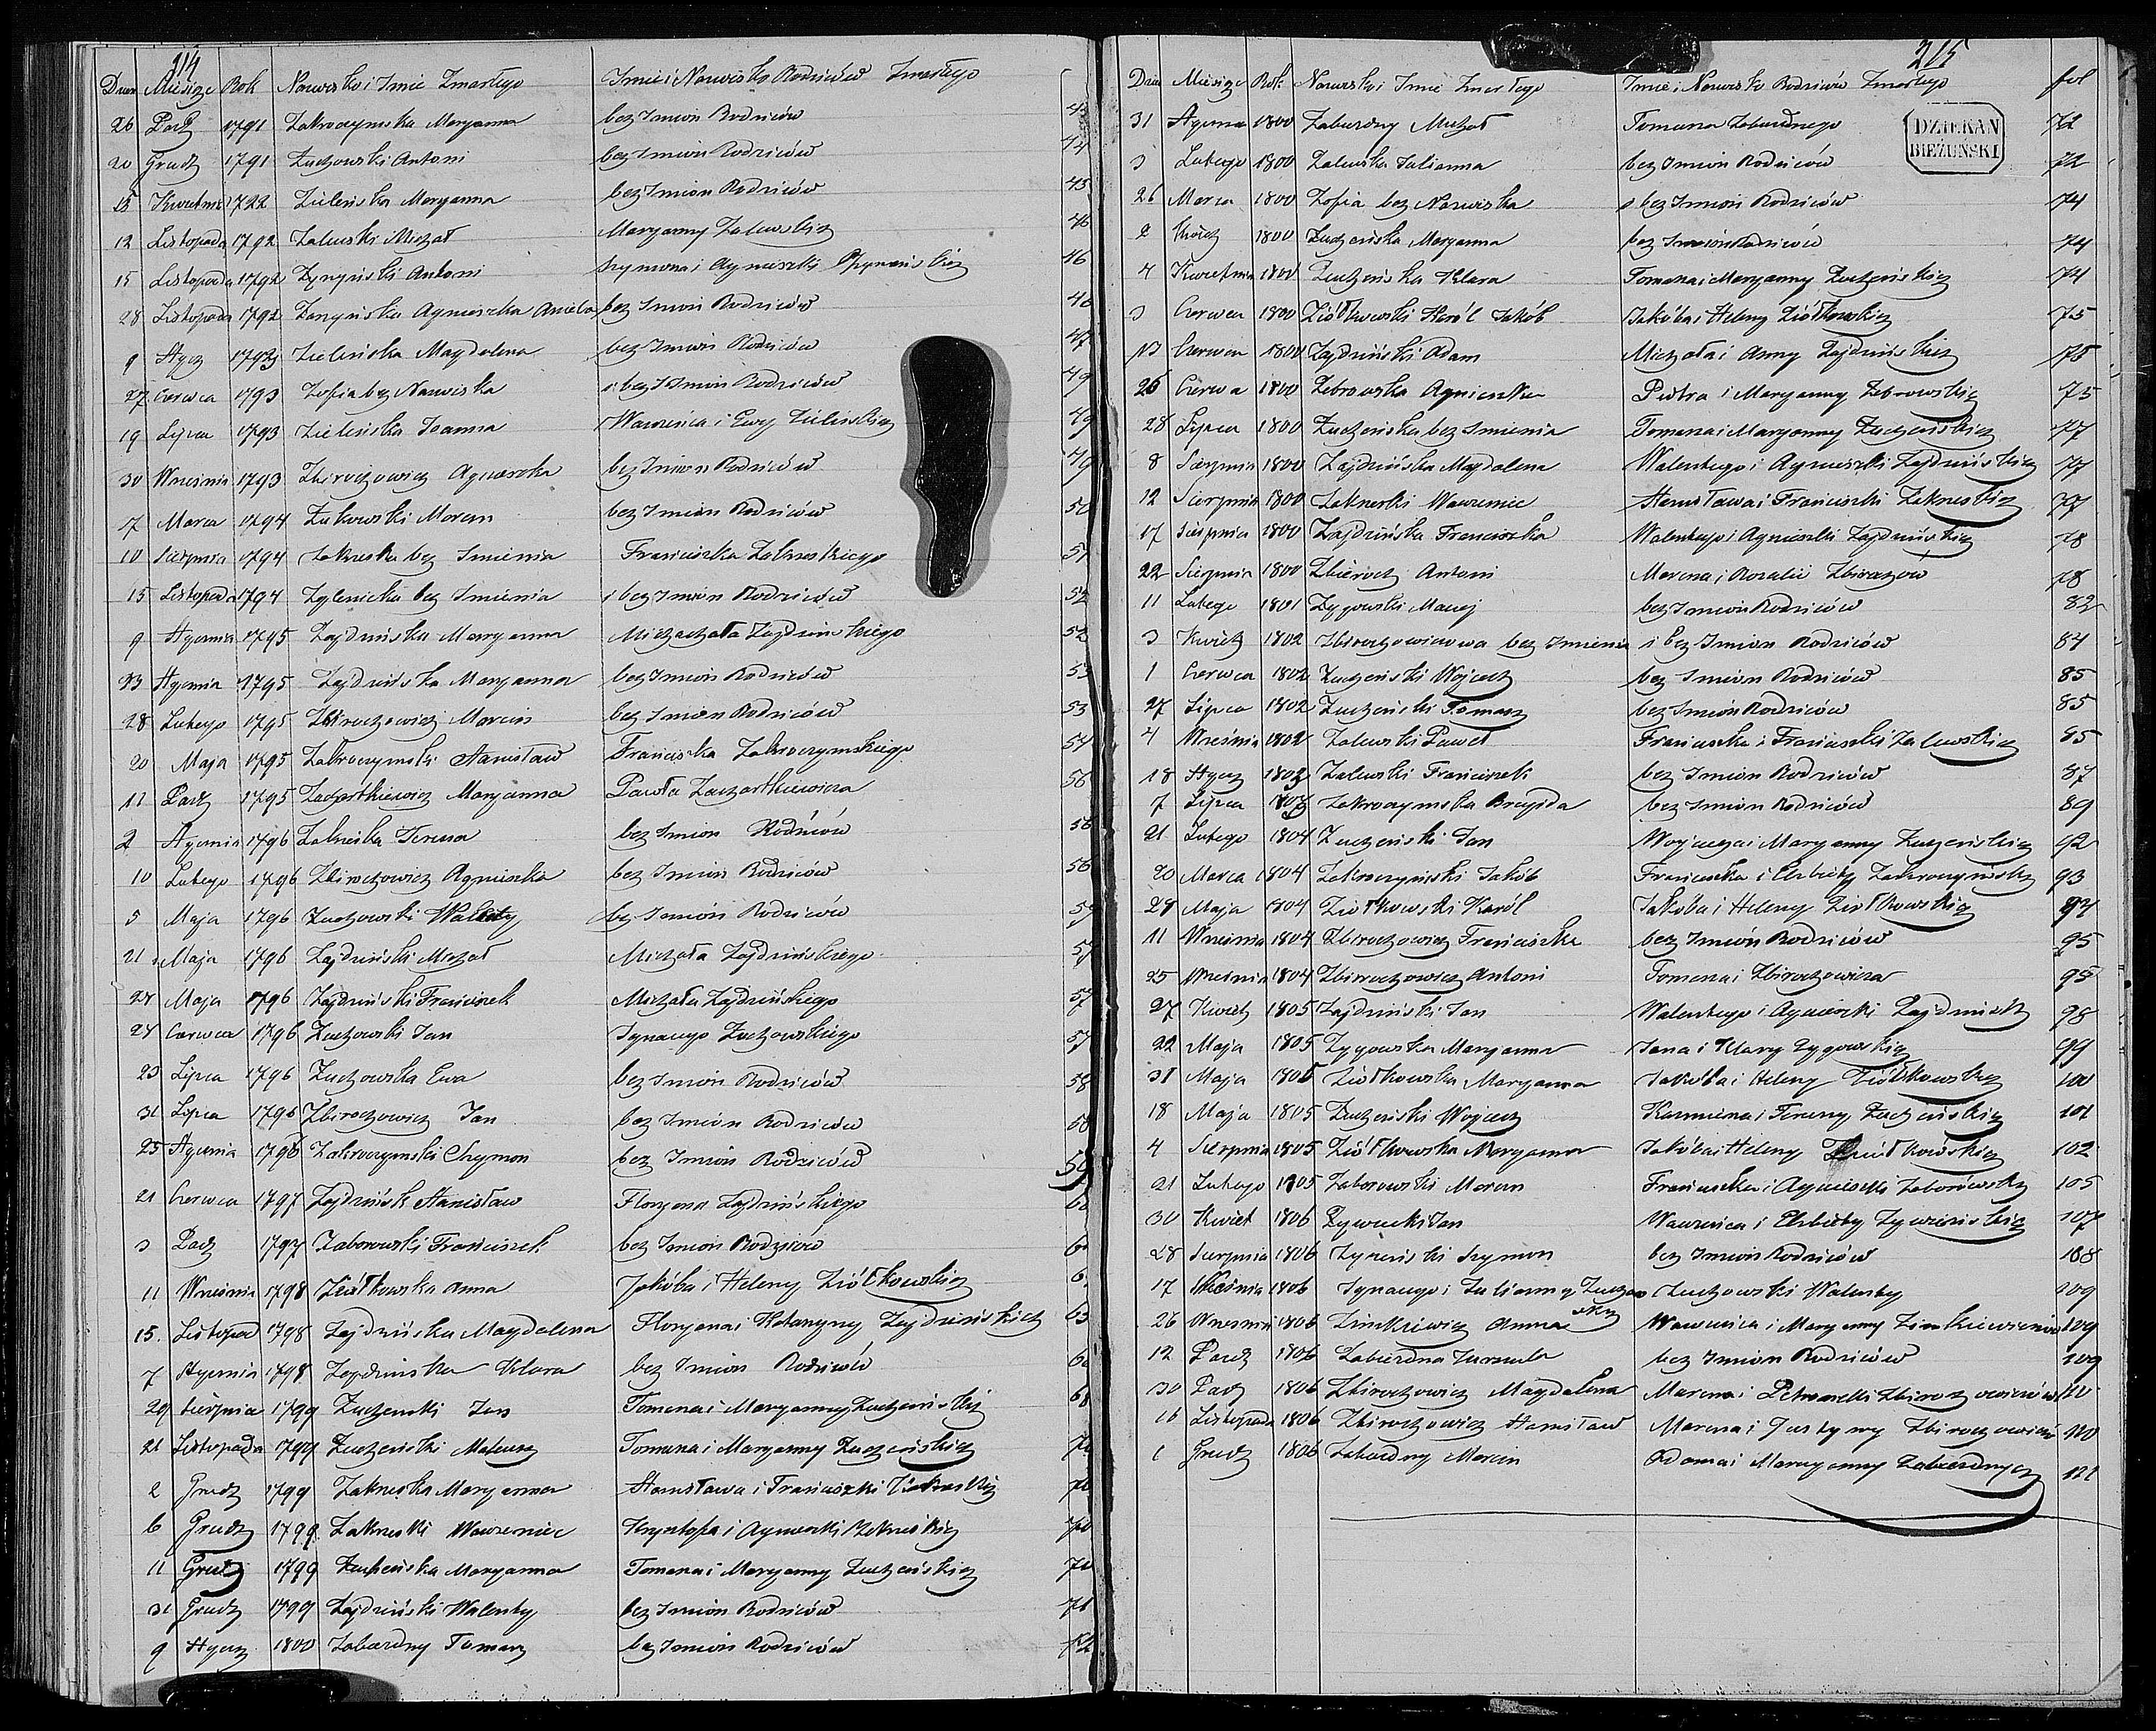 214
Dzień Miesiąc Rok Nazwisko i Imie Zmarłego Imie i Nazwisko Rodziców Zmarłego
26 Paź 1791 Zakroczymska Maryanna bez Imion Rodziców 43
20 Grudz 1791 Żuchowski Antoni bez Imion Rodziców 44
15 Kwietnia 1722 Zieleńska Maryanna bez Imion Rodziców 45
12 Listopada 1792 Zalewski Michał Maryanny Zalewskiej 46
15 Listopada 1792 Żyryński Antoni Szymona i Agnieszki 46
28 Listopada 1792 Agnieszka Aniela bez Imion Rodziców 46
9 Stycz 1793 Zielińska Magdalena bez Imion Rodziców 47
27 Czerwca 1793 Zofia bez Nazwiska i bez Imion Rodziców 49
19 Lipca 1793 Zielińska Joanna Wawrzeńca i Ewy Zielińskich 49
30 Wrzesnia 1793 Zbiroczowicz Agnieszka bez Imion Rodziców 49
17 Marca 1794 Żukowski Marcin bez Imion Rodziców 50
10 Sierpnia 1794 Zakrzeska bez Imienia Franciszka Zakrzeskiego 51
15 Listopada 1794 bez Imienia i bez Imion Rodziców 52
9 Stycznia 1795 Zajdzińska Maryanna Michała Zajdzińskiego 52
23 Stycznia 1795 Zajdzińska Maryanna bez Imion Rodziców 53
28 Lutego 1795 Zbiroczowicz Marcin bez Imion Rodziców 53
20 Maja 1795 Zakroczymski Stanisław Franciszka Zakroczymskiego 54
11 Paź 1795 Zachartkiewicz Maryanna Pawła Zachartkiewicza 56
2 Stycznia 1796 Zakrzeska Teresa bez Imion Rodziców 56
10 Lutego 1796 Zbiroczowicz Agnieszka bez Imion Rodziców 56
5 Maja 1796 Żuchowski Walenty bez Imion Rodziców
21 Maja 1796 Zajdziński Michał Michała Zajdzińskiego 57
24 Maja 1796 Zajdziński Franciszek Michała Zajdzińskiego 57
24 Czerwca 1796 Żuchowski Jan Ignacego Żuchowskiego 57
23 Lipca 1796 Żuchowska Ewa bez Imion Rodziców 58
31 Lipca 1796 Zbiroczowicz Jan bez Imion Rodziców 58
25 Stycznia 1796 Zakroczymski Szymon bez Imion Rodziców
21 Czerwca 1797 Zajdzińsk Stanisław Floryana Zajdzińskiego
3 Paź 1797 Zaborowski Franciszek bez Imion Rodziców
11 Wrzesnia 1798 Ziółkowska Anna Jakóba i Heleny Ziółkowskich
15. Listopad 1798 Zajdzińska Magdalena Floryana i Katarzyny Zajdzińskich 63
7 Stycznia 1798 Zajdzińska Klara bez Imion Rodziców
29 Sierpnia 1799 Żucheński Jan Tomana i Maryanny Żucheńskich 68
21 Listopada 1799 Żucheński Mateusz Tomana i Maryanny Żucheńskich 70
2 Grudz 1799 Zakrzeska Maryanna Stanisława i Franciszki Zakrzeskich 70
6 Grudz 1799. Zakrzeski Wawrzeniec Krysztofa i Agnieszki Zakrzeskich 70
11 Grudz 1799 Żucheńska Maryanna Tomana i Maryanny Żucheńskich 70
31 Grudz 1799 Zajdziński Walenty bez Imion Rodziców 71
9 Stycz 1800 Zaburdny Tomasz bez Imion Rodziców 72
215
Dzień Miesiąc Rok Nazwisko i Imie Zmarłego Imie i Nazwisko Rodziców Zmarłego fol
DZIEKAN
BIEŻUŃSKI
31 Stycznia 1800 Zaburdny Michał Tomana Zaburdnego 72
3 Lutego 1800 Zalewska Julianna bez Imion Rodziców 72
26 Marca 1800 Zofia bez Nazwiska i bez Imion Rodziców 74
2 Kwietz 1800 Żucheńska Maryanna bez Imion Rodziców 74
4 Kwietnia 1800 Żucheńska Klara Tomana i Maryanny Żucheńskich 74
3 Czerwca 1800 Ziółkowski Karól Jakób Jakóba i Heleny Ziółkowskich 75
13 Czerwca 1800 Zajdziński Adam Michała i Anny Zajdzińskich 75
26 Czerwca 1800 Żebrowska Agnieszka Piotra i Maryanny Żebrowskich 75
28 Lipca 1800 Żucheńska bez Imienia Tomana i Maryanny Żucheńskich 77
8 Sierpnia 1800 Zajdzińska Magdalena Walentego i Agnieszki Zajdzińskich 77
12 Sierpnia 1800 Zakrzeski Wawrzeniec Stanisława i Franciszki Zakrzeskich 77
17 Sierpnia 1800 Zajdzińska Franciszka Walentego i Agnieszki Zajdzińskich 78
22 Sierpnia 1800 Zbierocz Antoni Marcina i Rozalii 78
11 Lutego 1801 Zygowski Maciej bez Imion Rodziców 82
3 Kwietz 1802 Zbiroczowiczowa bez Imienia i bez Imion Rodziców 84
1 Czerwca 1802 Żucheński Wojciech bez Imion Rodziców 85
27 Lipca 1802 Żucheński Tomasz bez Imion Rodziców 85
4 Wrześnie 1802 Zalewski Paweł Franciszka i Franciszki Zalewskich 85
18 Stycz 1803 Zalewski Franciszek bez Imion Rodziców 87
7 Lipca 1803 Zakroczymska Brygida bez Imion Rodziców 89
21 Lutego 1804 Żucheński Jan Wojciecha i Maryanny Żucheńskich 92
20 Marca 1804 Zakroczymski Jakób Franciszka i Elzbiety Zakroczymskich 93
28 Maja 1804 Ziółkowski Karól Jakóba i Heleny Ziółkowskich 94
11 Wrzesnia 1804 Zbiroczowicz Franciszka bez Imion Rodziców 95
25 Wrzesnia 1804 Zbiroczowicz Antoni Tomana i Zbiroczowicza 95
27 Kwietz 1805 Zajdziński Jan Walentego i Agnieszki Zajdzińsk 98
22 Maja 1805 Zygowska Maryanna Jana i Klary Zygowskich 99
31 Maja 1805 Ziółkowska Maryanna Jakóba i Heleny Ziółkowskich 100
18 Maja 1805 Żucheński Wojciech Kazmierza i Teresy Żucheńskich 101
4 Sierpnia 1805 Ziółkowska Maryanna Jakóba i Heleny Ziółkowskich 102
21 Lutego 1805 Zaborowski Marcin Franciszka i Agnieszki Zaborowskich 105
30 Kwiet 1806 Jan Wawrzeńca i Elzbiety 107
28 Sierpnia 1806 Szymon bez Imion Rodziców 108
17 Wrześnie 1806 Ignacego i Julianny Żuchowskich Żuchowski Walenty 109
26 Wrzesnia 1806 Zimkiewicz Anna Wawrzeńca i Maryanny Zimkiewiczów 109
12 Paźdz 1806 Zaburdna Urszula bez Imion Rodziców 109
30 Paź 1806 Zbiroczowicz Magdalena Marcina i Petronelli Zbiroczowiczów 110
16 Listopada 1806 Zbiroczowicz Stanisław Marcina i Justyny Zbiroczowiczów 110
1 Grudz 1806 Zaburdny Marcin Adama i Maryanny Zaburdnych 121